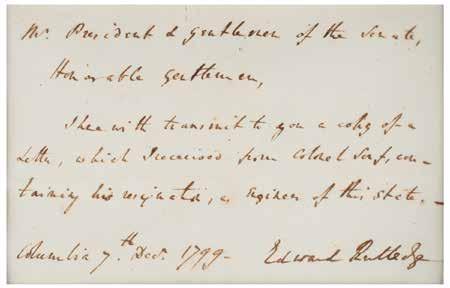 Mr. President & gentlemen of the Senate,
Honorable gentlemen,
I herewith transmit to you a copy of a
Letter, which I received from Colonel Senf, con-
taining his resignation, as Engineer of this State. –
Columbia 7th Decr. 1799 – Edward Rutledge